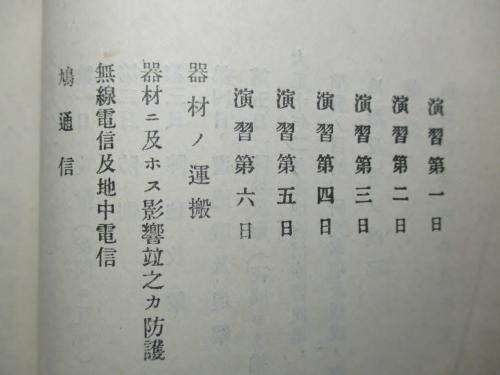 演習第一日
演習第二日
演習第三日
演習第四日
演習第五日
演習第六日
器材ノ運搬
器材ニ及ホス影響竝之カ防護
無線電信及地中電信
鳩通信